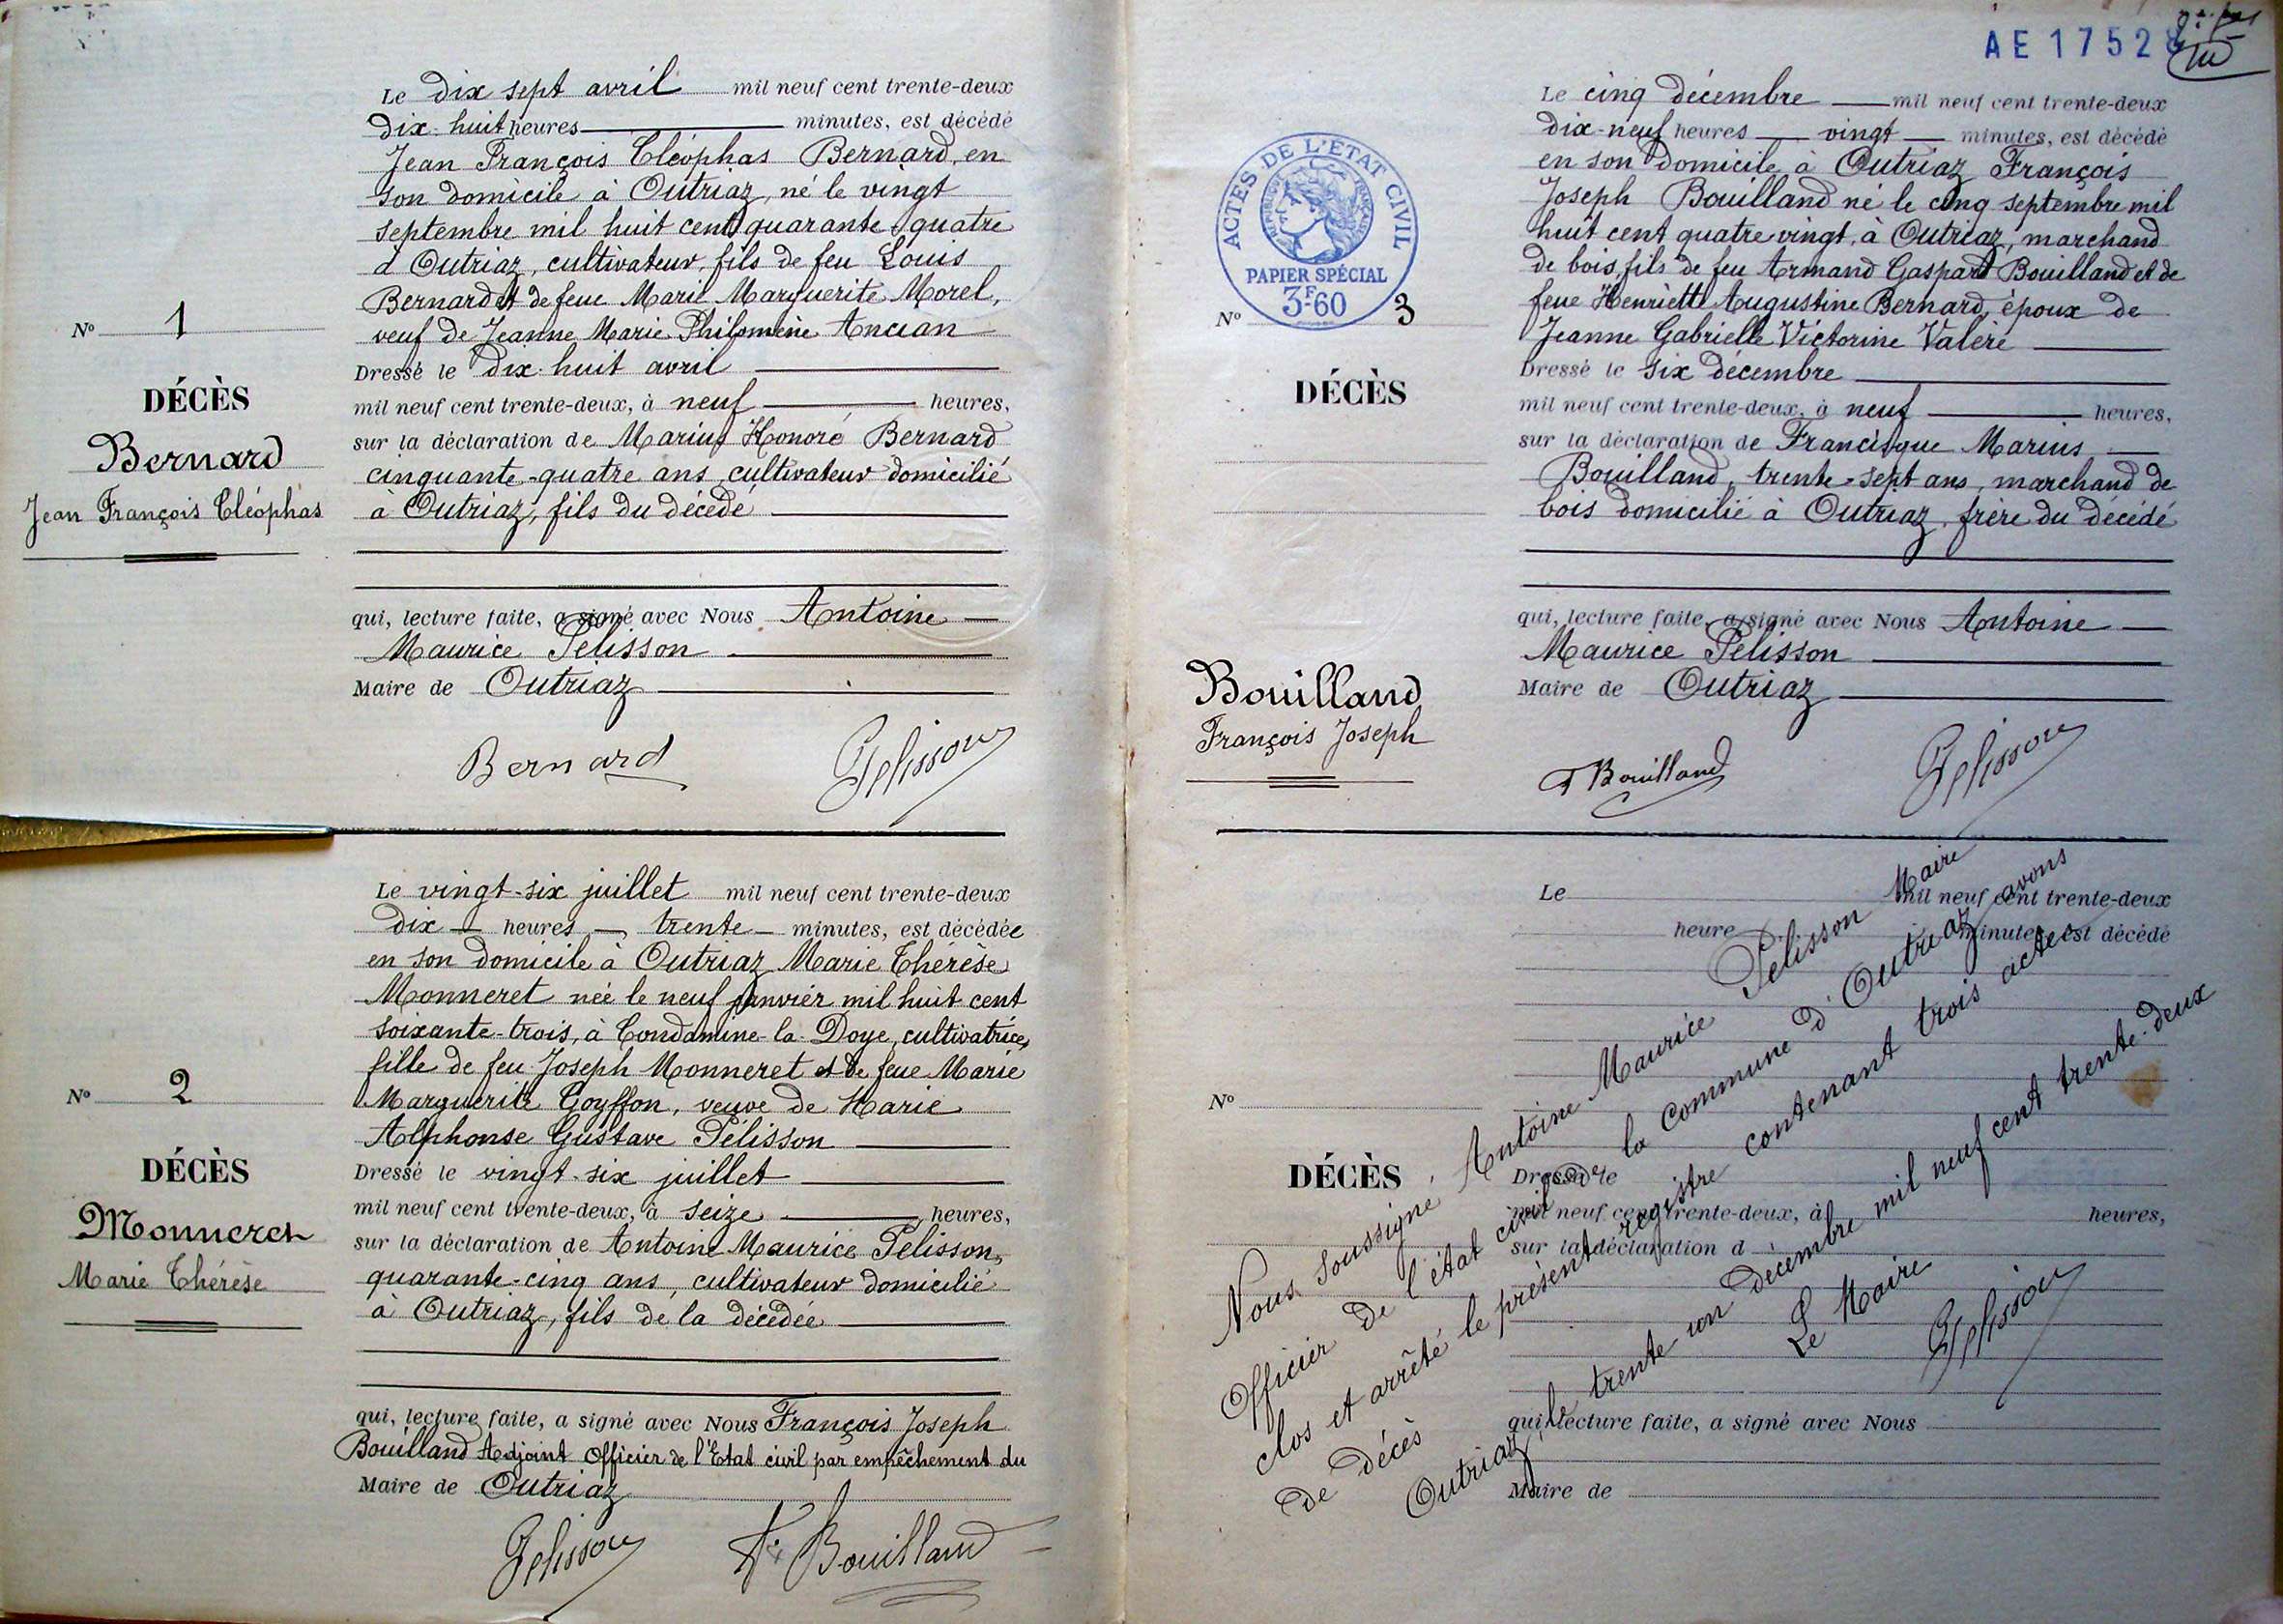 Le dix sept avril mil neuf cent trente-deux
dix-huit heures minutes, est décédé
Jean François Cléophas Bernard, en
son domicile à Outriaz, né le vingt
septembre mil huit cent quarante quatre
à Outriaz, cultivateur, fils de feu Louis
Bernard et de feue Marie Marguerite Morel,
veuf de Jeanne Marie Philomène Ancian
N° 1
DÉCÈS
Bernard
Jean François Cléophas
Dressé le dix-huit avril
mil neuf cent trente-deux, à neuf heures,
sur la déclaration de Marius Honoré Bernard
cinquante-quatre ans, cultivateur domicilié
à Outriaz, fils du décédé
qui, lecture faite, a signé avec Nous Antoine
Maurice Pélisson
Maire de Outriaz
Bernard Pelisson
Le vingt-six juillet mil neuf cent trente-deux
dix heures trente minutes, est décédée
en son domicile à Outriaz Marie Thérèse
Monneret née le neuf janvier mil huit cent
soixante-trois, à Condamine-la-Doye, cultivatrice,
fille de feu Joseph Monneret et de feue Marie
Marguerite Goyffon, veuve de Marie
Alphonse Gustave Pélisson
N° 2
DÉCÈS
Monneret
Marie Thérèse
Dressé le vingt-six juillet
mil neuf cent trente-deux, à seize heures,
sur la déclaration de Antoine Maurice Pelisson,
quarante-cinq ans, cultivateur domicilié
à Outriaz, fils de la décédée
qui, lecture faite, a signé avec Nous François Joseph
Bouilland Adjoint Officier de l'Etat civil par empêchement du
Maire de Outriaz
Pelisson Fs Bouilland
AE 1752
ACTES DE L'ÉTAT CIVIL
RÉPUBLIQUE FRANÇAISE
PAPIER SPÉCIAL
3F-60
Le cinq décembre mil neuf cent trente-deux
dix-neuf heures vingt minutes, est décédé
en son domicile à Outriaz François
Joseph Bouilland né le cinq septembre mil
huit cent quatre vingt, à Outriaz, marchand
de bois, fils de feu Armand Gaspard Bouilland et de
feue Henriette Augustine Bernard, époux de
Jeanne Gabrielle Victorine Valéré
N° 3
DÉCÈS
Bouilland
François Joseph
Dressé le six décembre
mil neuf cent trente-deux, à neuf heures,
sur la déclaration de Francisque Marius
Bouilland, trente-sept ans, marchand de
bois domicilié à Outriaz, frère du décédé
qui, lecture faite, a signé avec Nous Antoine
Maurice Pélisson
Maire de Outriaz
F Bouilland Pelisson
Le mil neuf cent trente-deux
heure minutes, est décédé
N°
DÉCÈS
Dressé le
mil neuf cent trente-deux, à heures,
sur la déclaration d
qui, lecture faite, a signé avec Nous
Maire de
Nous soussigné Antoine Maurice Pélisson Maire
Officier de l'état civil de la commune d'Outriaz avons
clos et arrêté le présent registre contenant trois actes
de décès
Outriaz, le trente un décembre mil neuf cent trente-deux
Le Maire
Pelisson